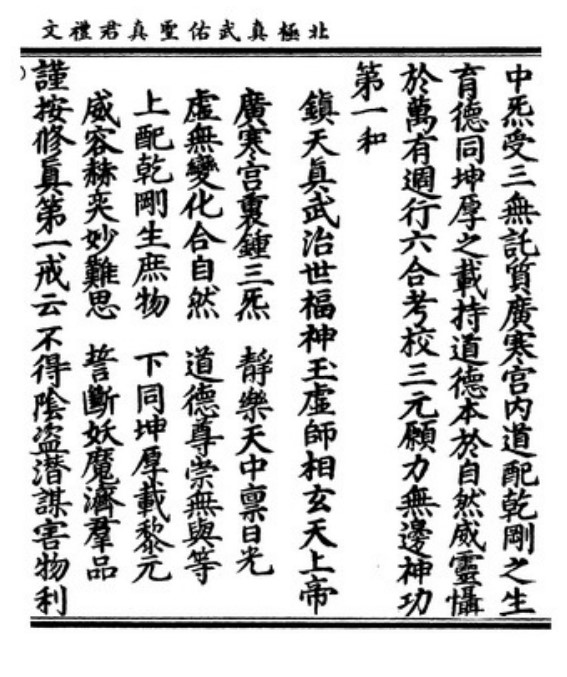 北極真武佑聖真君禮文
中炁受三無託質廣寒宮内道配乾剛之生
育德同坤厚之載持道德本於自然威靈懾
於萬有週行六合考校三元願力無邊神功
第一和
鎮天真武治世福神玉虛師相玄天上帝
廣寒宮裏鍾三炁　靜樂天中禀日光
虛無變化合自然　道德尊崇無與等
上配乾剛生庶物　下同坤厚載黎元
威容赫奕妙難思　誓斷妖魔濟羣品
謹按修眞第一戒云不得陰盜潛謀害物利